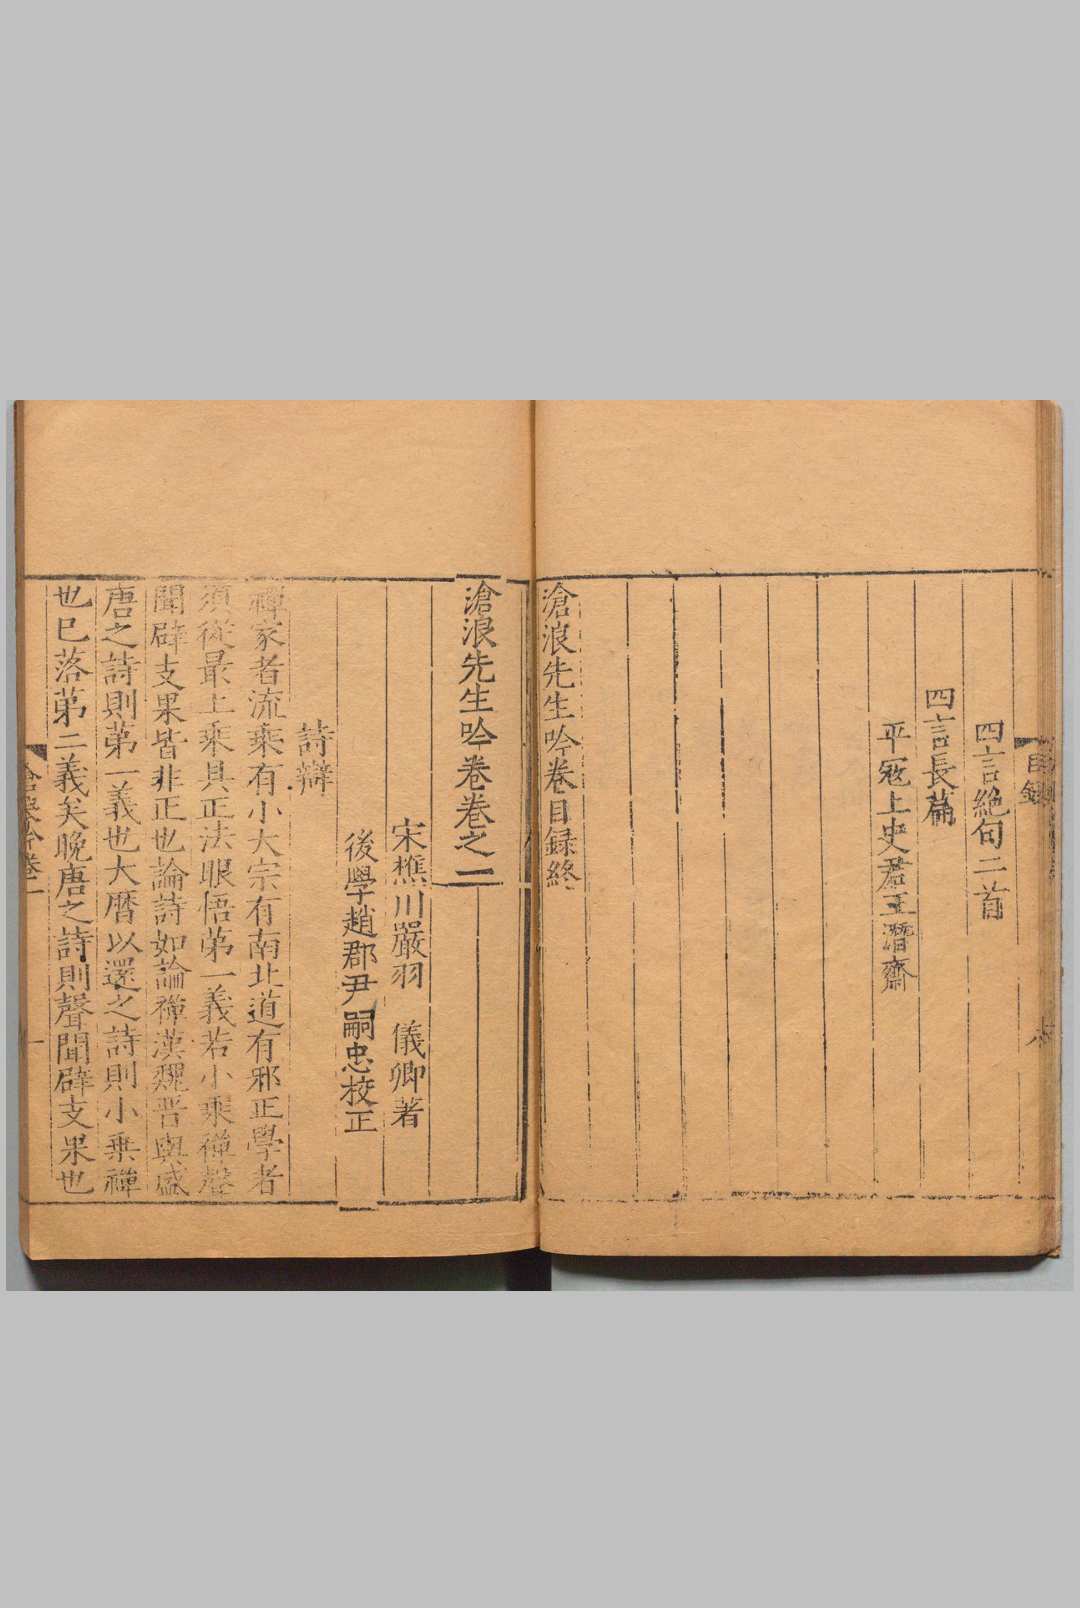 目錄
四言絕句二首
四言長篇
平寇上史君王潛齋
滄浪先生吟卷目録終
滄浪先生吟卷卷之一
宋樵川嚴羽　儀卿著
後學趙郡尹嗣忠校正
詩辯
禪家者流乘有小大宗有南北道有邪正學者
須從最上乘具正法眼悟第一義若小乘禪聲
聞辟支果皆非正也論詩如論禪漢魏晉與盛
唐之詩則第一義也大曆以還之詩則小乘禪
也已落第二義矣晚唐之詩則聲聞辟支果也